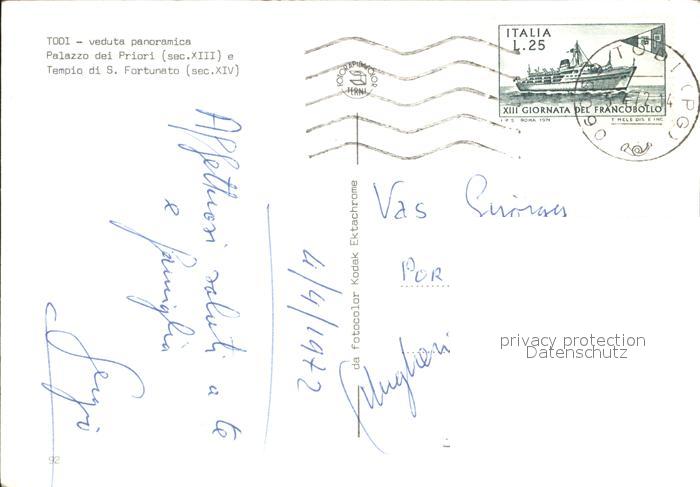 TODI – veduta panoramica
Palazzo dei Priori (sec.XIII) e
Tempio di S. Fortunato (sec.XIV)
ITALIA
L.25
XIII GIORNATA DEL FRANCOBOLLO
I.P.S. ROMA 1971 T MELE DIS. E INC.
TODI (PG)
FOTORAPIDACOLOR
TERNI
Affettuosi saluti a te
e famiglia
Sergio
4/4/1972
da fotocolor Kodak Ektachrome
Vas
POR
privacy protection
Datenschutz
92